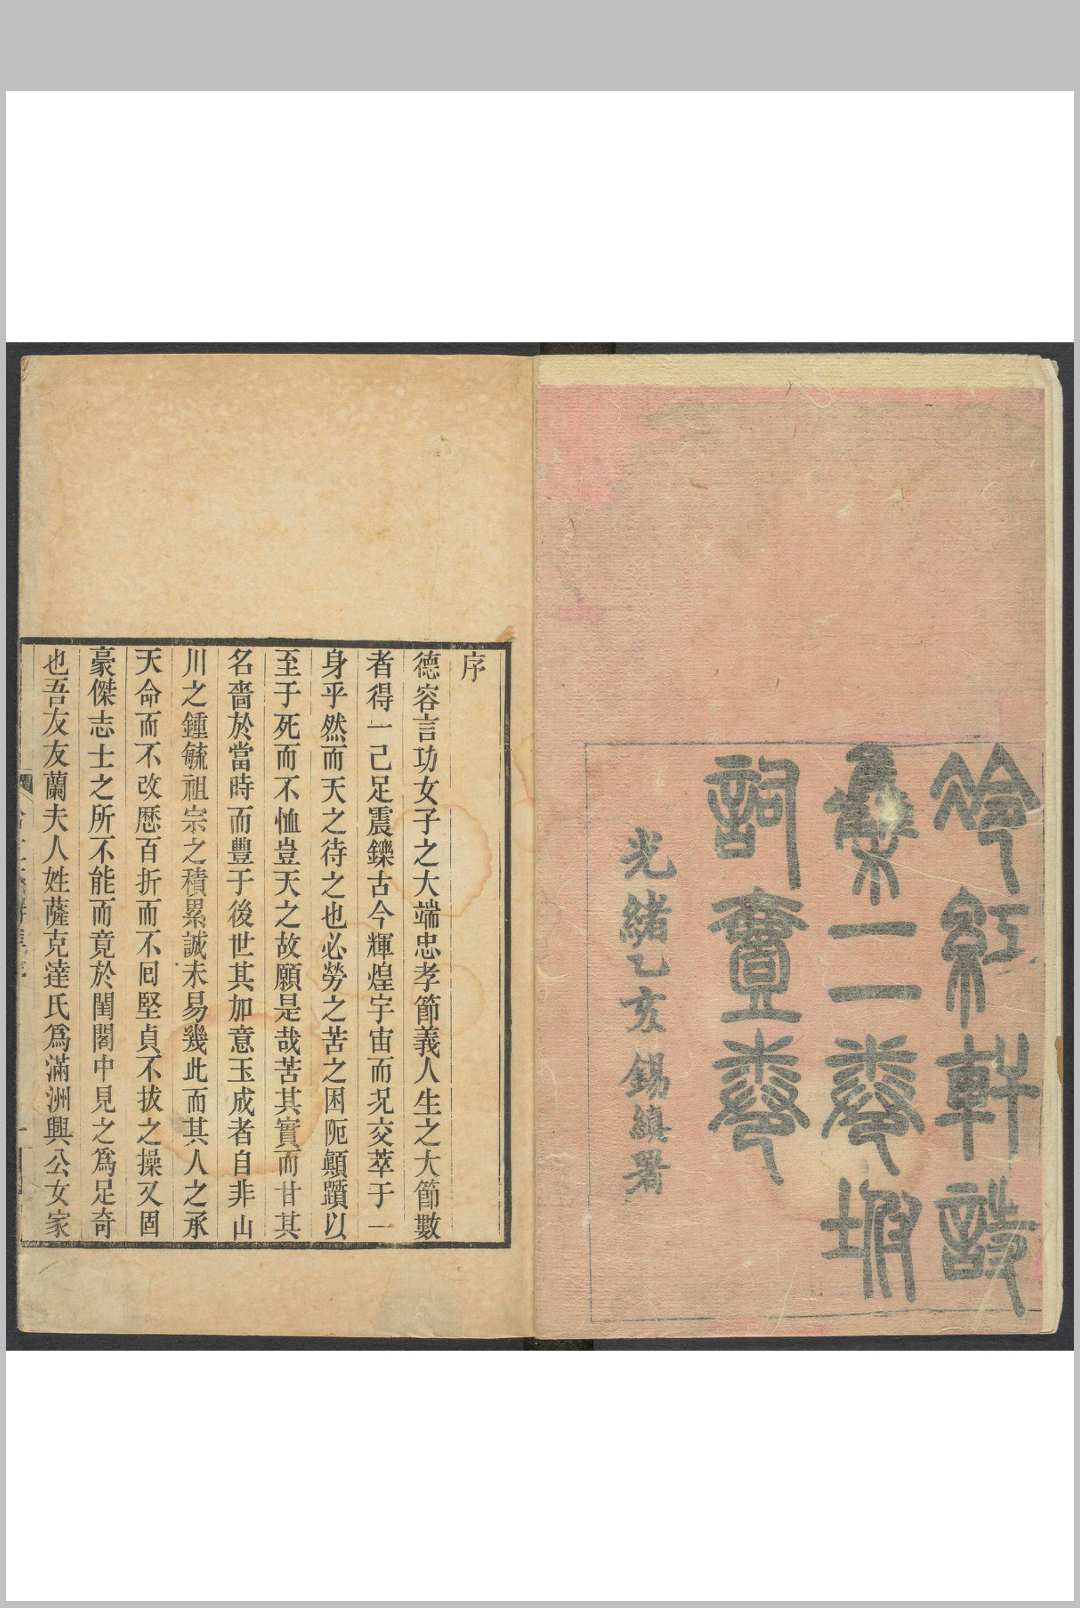 冷紅軒詩
集二卷坿
詞壹卷
光緒乙亥錫縝署
序
德容言功女子之大端忠孝節義人生之大節數
者得一己足震鑠古今輝煌宇宙而況交萃于一
身乎然而天之待之也必勞之苦之困阨顛躓以
至于死而不恤豈天之故願是哉苦其實而甘其
名嗇於當時而豐于後世其加意玉成者自非山
川之鍾毓祖宗之積累誠未易幾此而其人之承
天命而不改歴百折而不囘堅貞不拔之操又固
豪傑志士之所不能而竟於閨閣中見之爲足奇
也吾友友蘭夫人姓薩克達氏爲滿洲興公女家